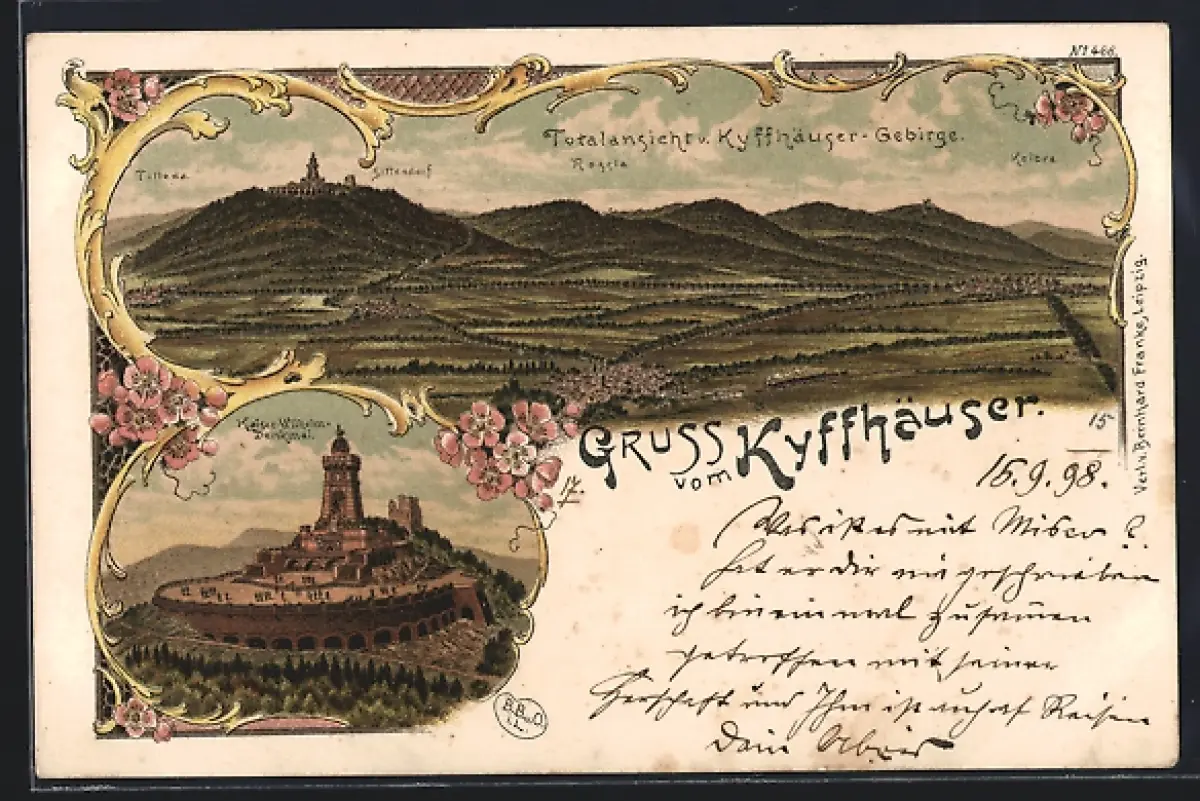 No 466.
Totalansicht v. Kyffhäuser-Gebirge.
Tilleda.
Sittendorf
Rossla
Kelbra
Verl. v. Bernhard Franke, Leipzig.
Kaiser Wilhelm-
Denkmal.
GRUSS
vom Kyffhäuser.
17.
15
15.9.98.
Was ist es mit ?
hat er Dir nie geschrieben
ich bin einmal zusamen
getroffen mit seiner
Herschaft und Ihm ist auch auf Reisen
Dein